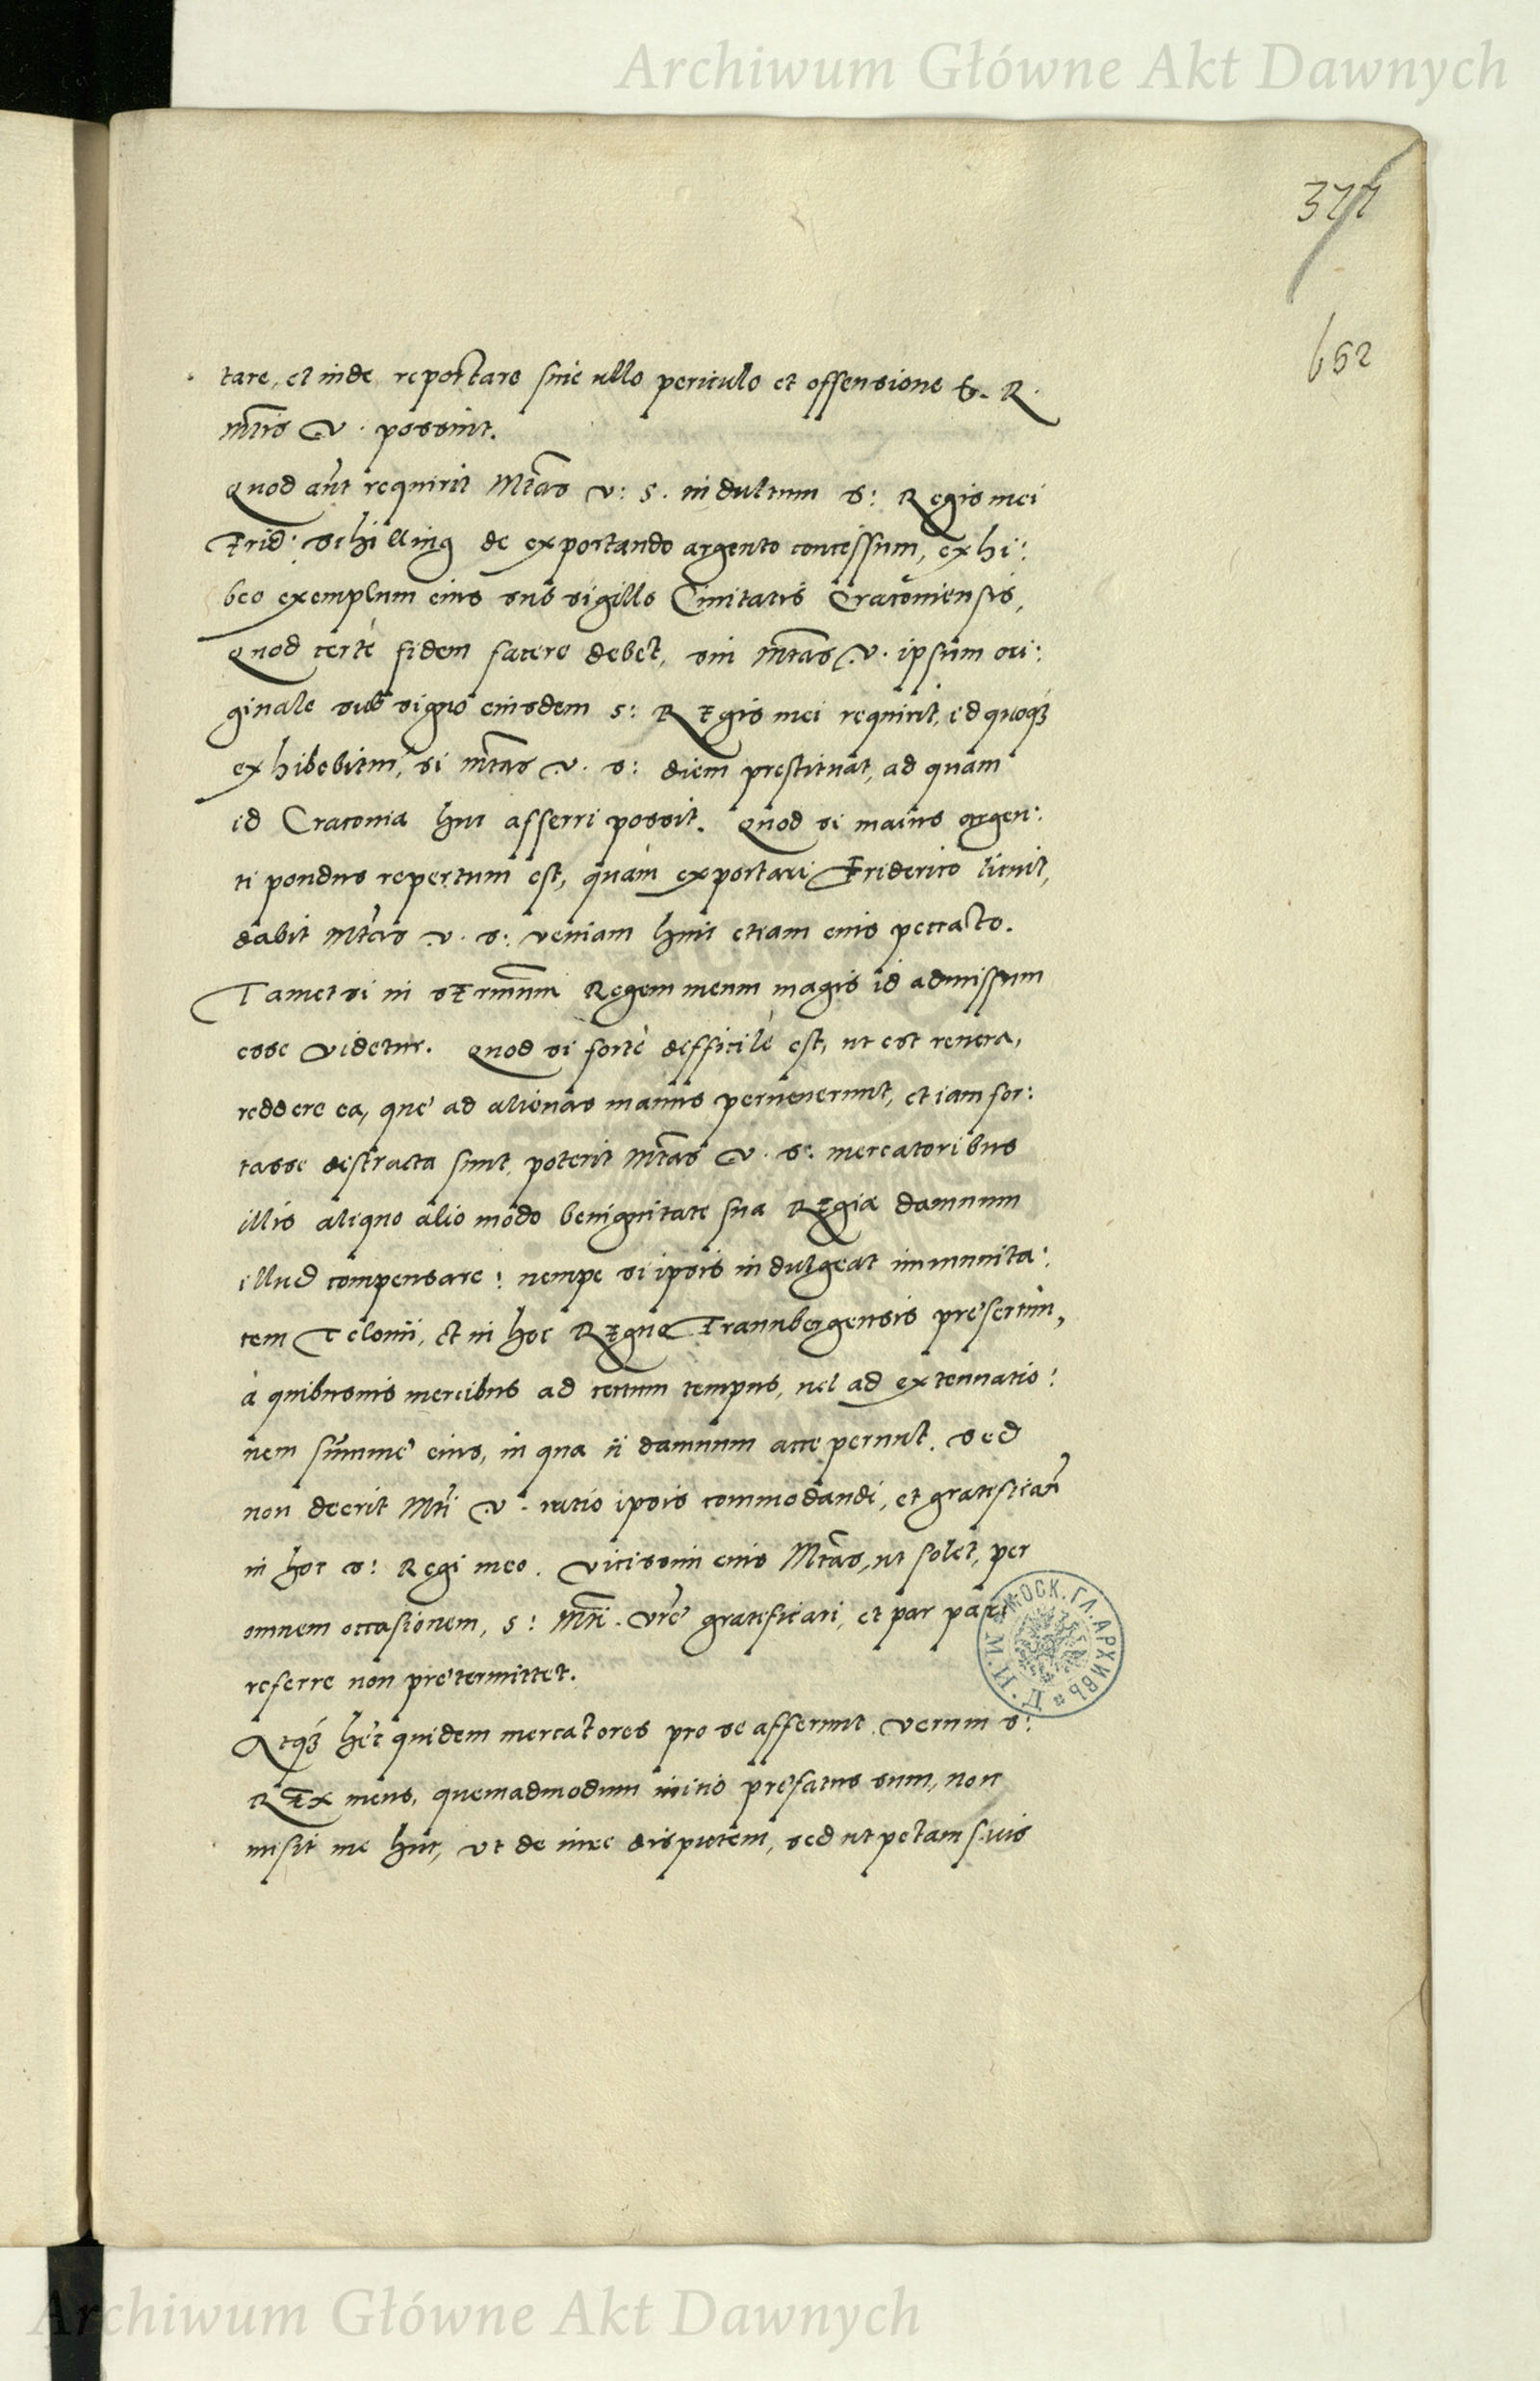 Archiwum Główne Akt Dawnych
377
652
tare, et inde reportare sine ullo periculo et offensione S. R.
mtis v. possint.
Quod aūt requirit Mtas v: s. indultum s: Regis mei
Frid: Schilling de exportando argento concessum, exhi:
beo exemplum eius sub sigillo Ciuitatis Cracouiensis,
quod certè fidem facere debet, sin mtas v. ipsum ori:
ginale sub signo eiusdem s: REgis mei requirit, id quoqз
exhibebitur, si mtas v. s: diem prestituat, ad quam
id Cracouia huc afferri possit. Quod si maius argen:
ti pondus repertum est, quàm exportari Friderico licuit,
dabit Mtas v. s: veniam huic etiam eius peccato.
Tametsi in sErmum Regem meum magis id admissum
esse videtur. Quod si fortè difficilè est, ut est reuera,
reddere ea, que ad alienas manus peruenerunt, et iam for:
tasse distracta sunt, poterit Mtas v. s: mercatoribus
illis aliquo alio modo benignitate sua REgia damnum
illud compensare: nempe si ipsis indulgeat immunita:
tem Telonii, et in hoc REgno Traunbergensis presertim,
à quibusuis mercibus ad certum tempus, uel ad extenuatio:
nem summe eius, in qua ii damnum acceperunt. Sed
non deerit Mti v. ratio ipsis commodandi, et gratificañ
in hoc s: Regi meo. Vicissim eius Mtas, ut solet, per
omnem occasionem, s: Mti. Vre gratificari, et par pari
referre non pretermittet.
Atqз hec quidem mercatores pro se afferunt. Verum s:
REx meus, quemadmodum initio prefatus sum, non
misit me huc, ut de iure disputem, sed ut petam suis
МОСК. ГЛ. АРХИВЪ М. И. Д.
Archiwum Główne Akt Dawnych